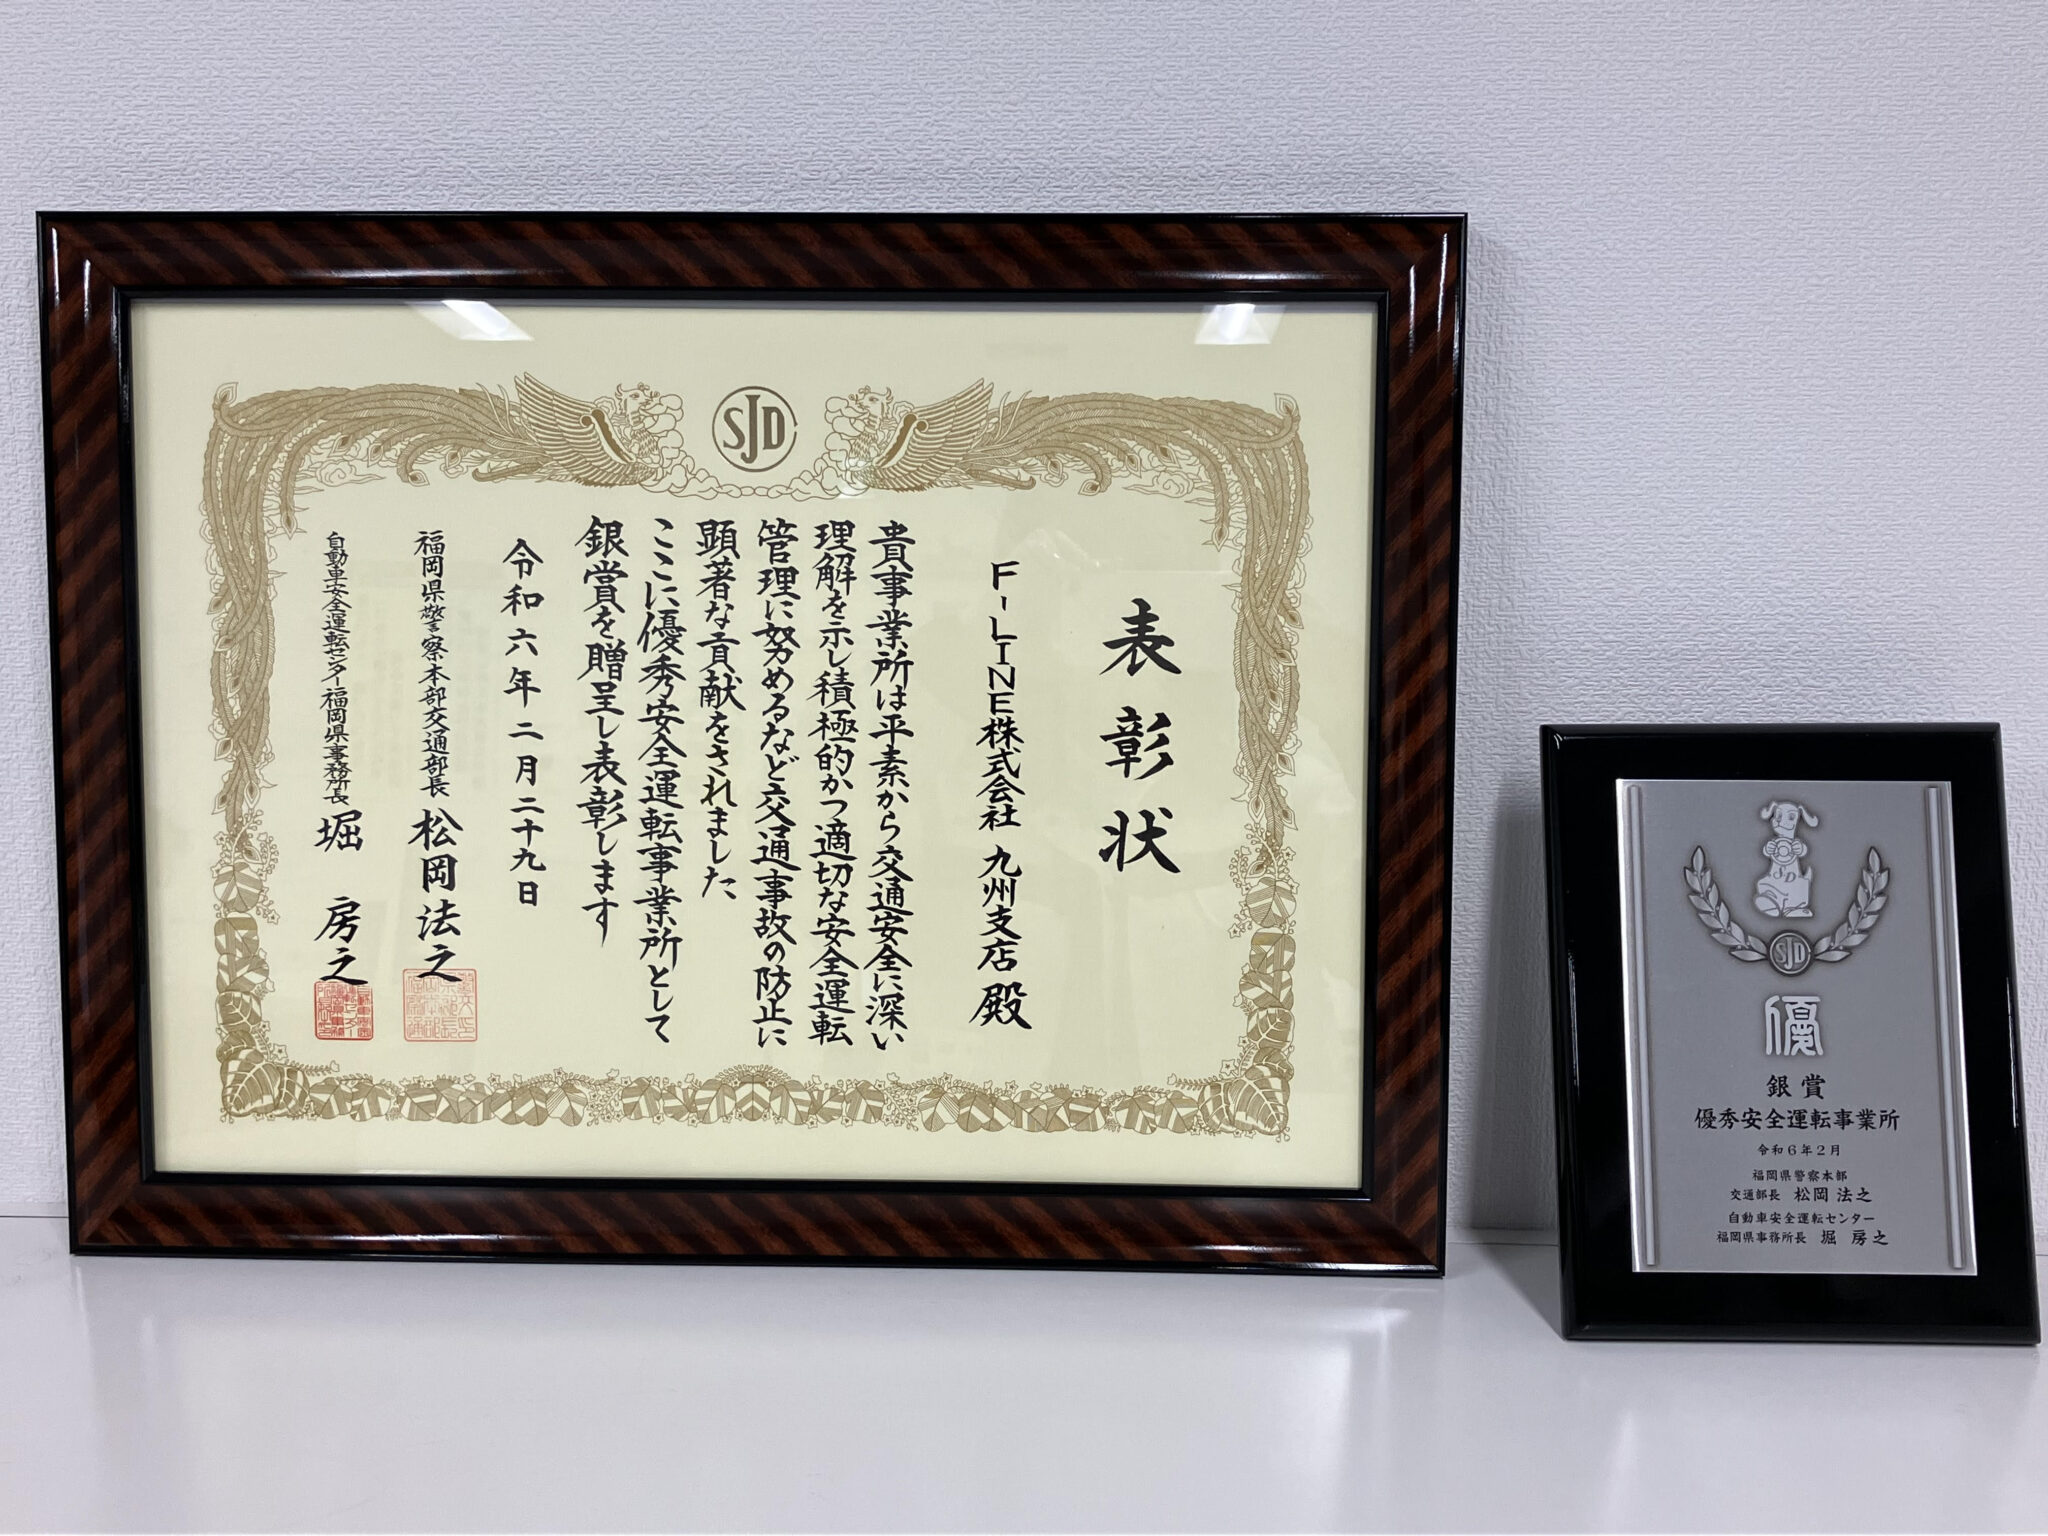 SJD
表彰状
F-LINE株式会社 九州支店 殿
貴事業所は平素から交通安全に深い
理解を示し積極的かつ適切な安全運転
管理に努めるなど交通事故の防止に
顕著な貢献をされました
ここに優秀安全運転事業所として
銀賞を贈呈し表彰します
令和六年二月二十九日
福岡県警察本部交通部長 松岡法之
自動車安全運転センター福岡県事務所長 堀 房之
SD
SJD
優
銀賞
優秀安全運転事業所
令和6年2月
福岡県警察本部
交通部長 松岡 法之
自動車安全運転センター
福岡県事務所長 堀 房之